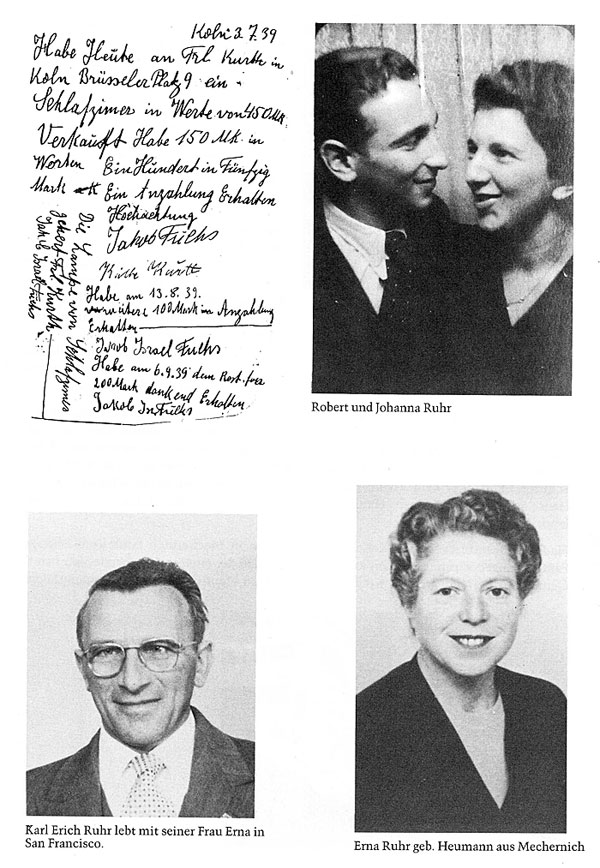 Köln 3.7.39
Habe Heute an Frl Kurth in
Köln Brüsseler Platz 9 ein
Schlafzimer in Werte von 450 Mk.
Verkaufft Habe 150 Mk. in
Worten Ein Hundert in Fünfzig
Mark Ein Anzahlung Erhalten
Hochachtung
Jakob Fuchs
Käthe Kurth
Habe am 13.8.39.
weitere 100 Mark in Anzahlung
Erhalten
Jakob Israel Fuchs
Habe am 6.9.39 dem Rest
200 Mark dankend Erhalten
Jakob Is Fuchs
Die Lampe von Schlafzimer
Frl Kurth
Jakob Israel Fuchs
Robert und Johanna Ruhr
Karl Erich Ruhr lebt mit seiner Frau Erna in
San Francisco.
Erna Ruhr geb. Heumann aus Mechernich